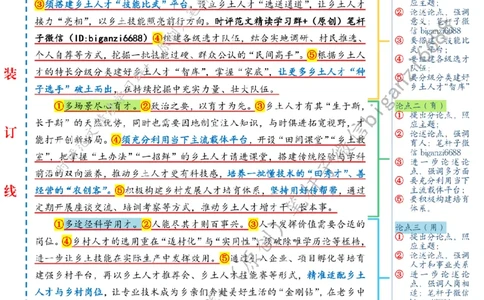 ③须搭建乡土人才“技能比武”平台。设立乡土人才“送进送退”，让乡土人才
接力“亮相”，以乡土技能照亮前行方向。时评范文精读学习群+（原创）笔杆
子微信（ID:biganzi6688）④构建各级选才队伍，结合实地调研、村民推选、
个人自荐等方式，挖掘一批技能过硬、群众公认的“民间高手”。⑤根据乡土人
才的特长分级分类建好乡土人才“智库”，掌握“家底”，让更多乡土人才“种
子选手”破土而出，在持续挖掘中充实力量、壮大队伍。
①多场景尽心育才。②政治之要，以育才为先。③乡土人才有其“生于斯，
长于斯”的天然优势，同时也需要因地制宜注入知识，与时俱进拓宽视野，才
能打开创新格局。④须充分利用当下主流载体平台，开设“田间课堂”“乡土教
室”，让掌握“土办法”“一招鲜”的乡土人才请进课堂，搭建传统经验与学科
前沿的双向涵养，推动乡土人才更专有科技感，培养一批懂技术的“田秀才”、善
经营的“农创客”。⑤织机构建乡村发展人才培育体系，坚持用好传帮带，通过
定期开展座谈交流、培训考察等方式，推动乡土人才增才干、长本事。
①多途径科学用才。②人能尽其才则百事兴。③人才发挥价值需要合适的
岗位。④乡村人才的选用重在“适村化”与“实用性”，须破除唯学历论等桎梏，
进一步让乡土技能在实际生产中发挥效用。⑤通过引入企业、项目孵化等培育
建强乡村平台，再以乡土人才推荐会、乡土人才技能赛等形式，精准适配乡土
人才与乡村岗位，让专业技术成为乡亲们奔赴美好生活的“金刚钻”，在老乡中
装
订
线
应主题；
② 论述论点，强调
意义；笔杆子微
信 biganzi6688
③ 要搭建“技能比
武”平台；
④ 要搭建各级选才
队伍；
⑤ 要分级分类建好
乡土人才“智库”
论点二（育）
① 提出分论点，照
应主题；
② 论述论点，强调
育人；笔杆子微
信 biganzi6688
③ 进一步论述论
点，强调多方面
④ 要充分利用当下
主流载体平台；
⑤ 要积极构建培育
体系。
论点三（用）
① 提出分论点，照
应主题；
② 论述论点，强调
人才和事业关系
③ 进一步论述论
点，强调人岗相